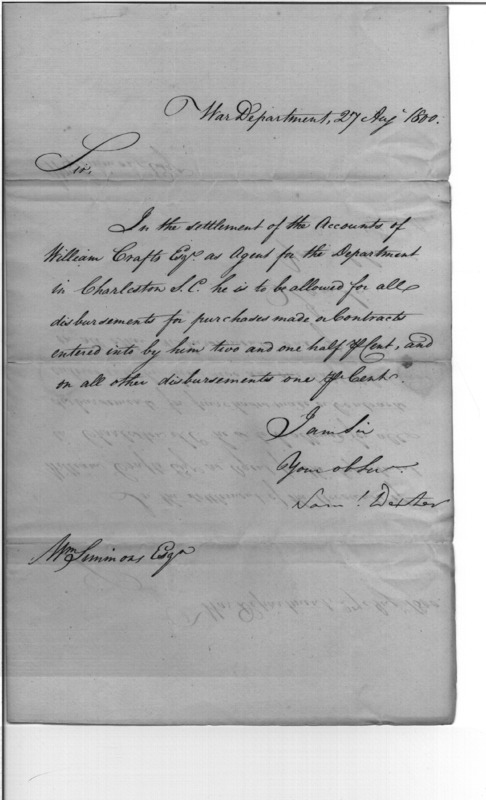 War Department, 27 Augt 1800.
Sir,
In the settlement of the Accounts of
William Crafts Esqr as Agent for the Department
in Charleston S.C. he is to be allowed for all
disbursements for purchases made or Contracts
entered into by him two and one half ⅌ Cent, and
on all other disbursements one ⅌ Cent.
I am Sir
Your obServ.
Saml. Dexter
Wm Simmons Esqr